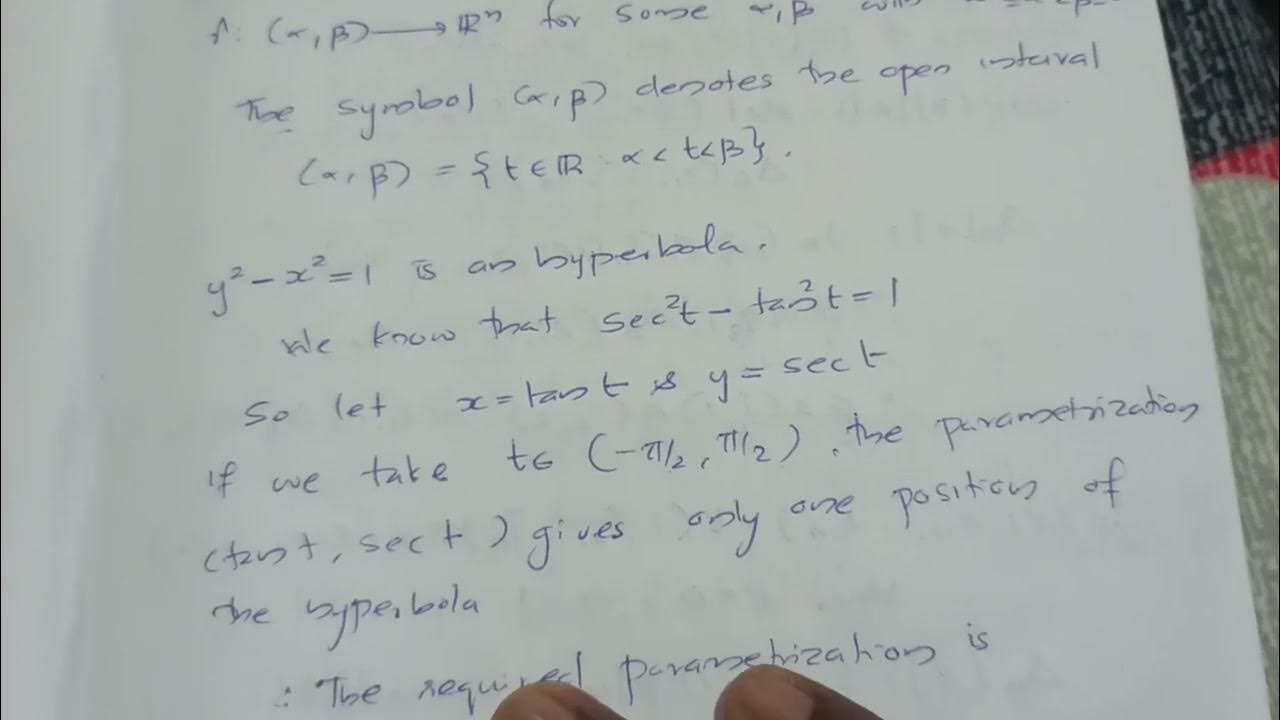 γ: (α, β) → ℝⁿ for some α, β with
The symbol (α, β) denotes the open interval
(α, β) = {t ∈ ℝ : α < t < β}.
y² − x² = 1 is an hyperbola.
We know that sec²t − tan²t = 1
So let x = tan t & y = sec t
If we take t ∈ (−π/2, π/2), the parametrization
(tan t, sec t) gives only one position of
the hyperbola
∴ The required parametrization is